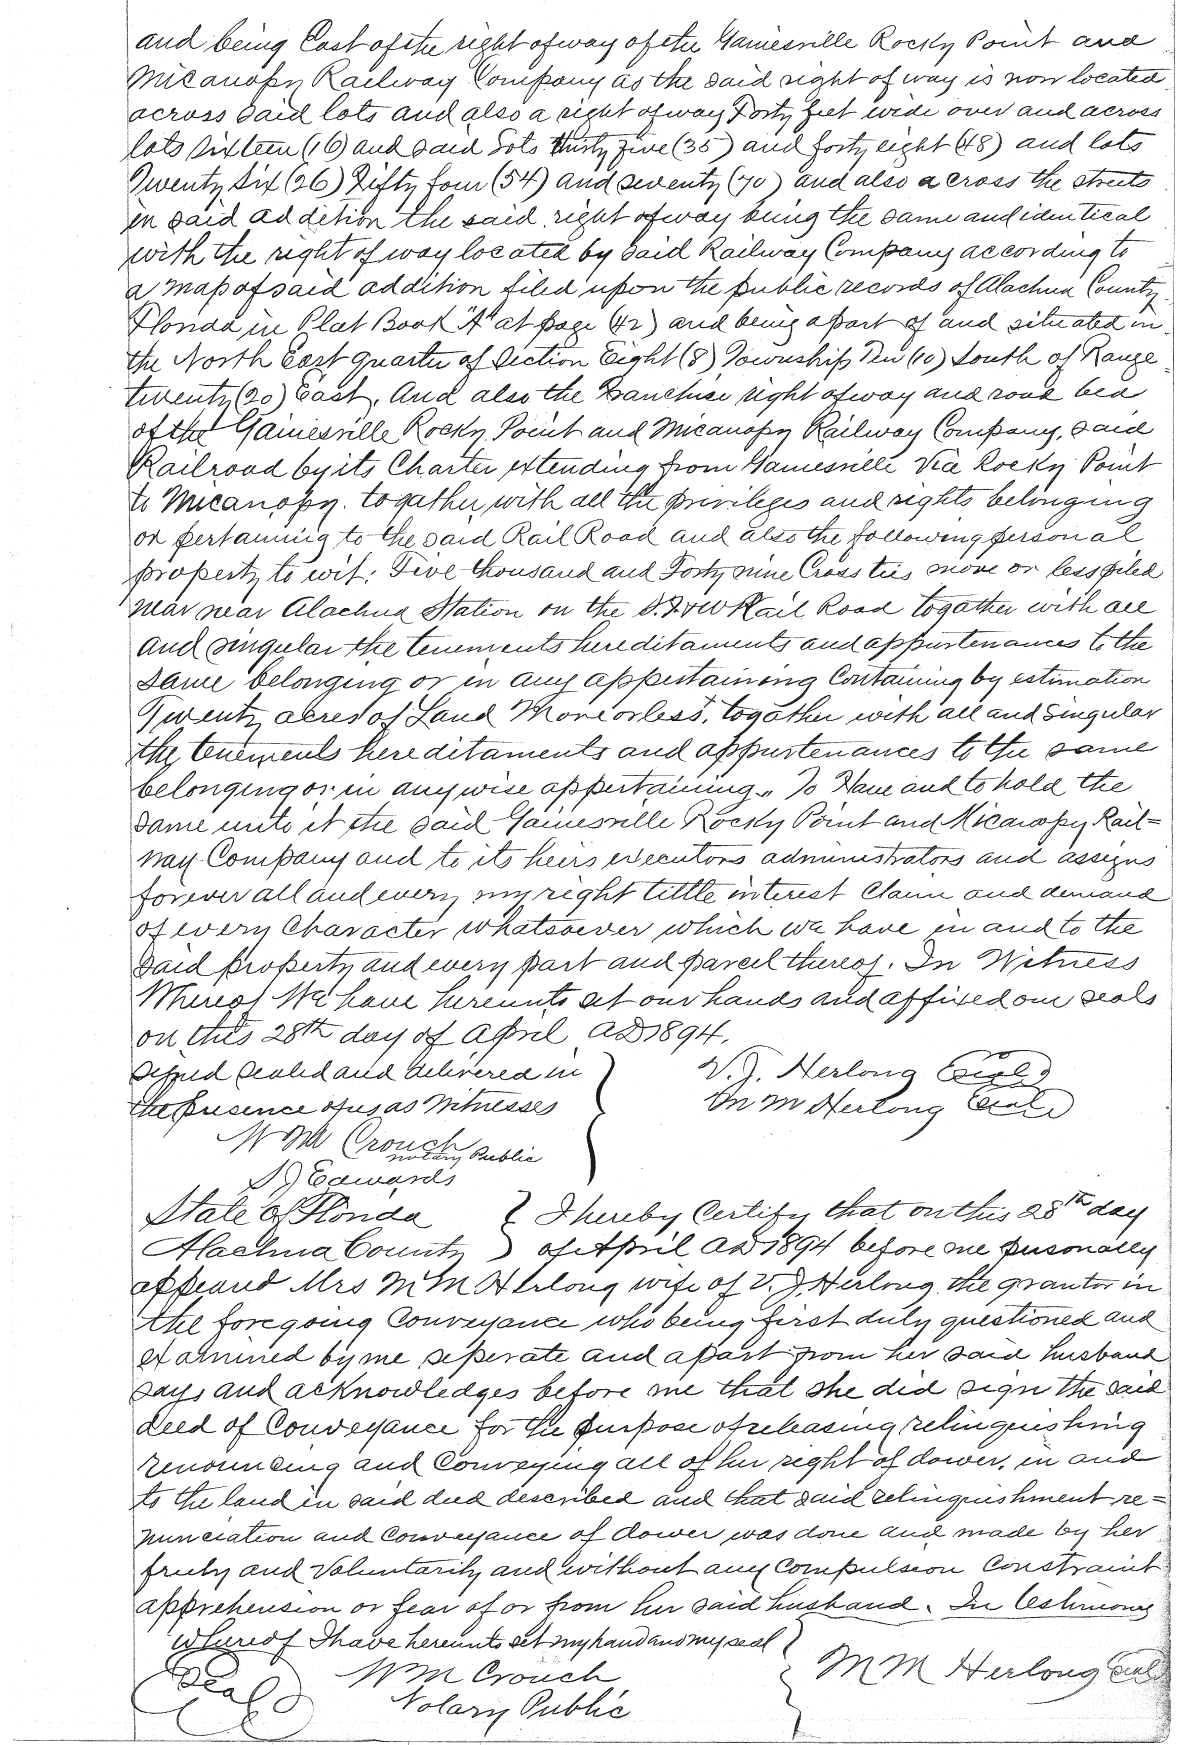 and being East of the right of way of the Gainesville Rocky Point and
Micanopy Railway Company as the said right of way is now located
across said lots and also a right of way Forty feet wide over and across
lots sixteen (16) and said Lots thirty five (35) and forty eight (48) and lots
Twenty Six (26) Fifty four (54) and seventy (70) and also across the streets
in said addition the said right of way being the same and identical
with the right of way located by said Railway Company according to
a map of said addition filed upon the public records of Alachua County
Florida in Plat Book "A" at page (42) and being a part of and situated in
the North East quarter of Section Eight (8) Township Ten (10) South of Range
twenty (20) East. And also the Franchise right of way and road bed
of the Gainesville Rocky Point and Micanopy Railway Company, said
Railroad by its Charter extending from Gainesville via Rocky Point
to Micanopy. togather with all the privileges and rights belonging
or pertaining to the said Rail Road and also the following personal
property to wit: Five thousand and Forty nine Cross ties more or less piled
near near Alachua Station on the S. F & W Rail Road togather with all
and singular the tenements hereditaments and appurtenances to the
same belonging or in any appertaining Containing by estimation
Twenty acres of Land More or less, togather with all and singular
the tenements hereditaments and appurtenances to the same
belonging or in anywise appertaining. To Have and to hold the
same unto it the said Gainesville Rocky Point and Micanopy Rail=
way Company and to its heirs executors administrators and assigns
forever all and every my right tittle interest claim and demand
of every Character whatsoever which we have in and to the
said property and every part and parcel thereof. In Witness
Whereof We have hereunto set our hands and affixed our seals
on this 28th day of April AD 1894.
signed sealed and delivered in
the presence of us as Witnesses
V. J. Herlong Seal
M M Herlong Seal
W M Crouch
Notary Public
S J Edwards
State of Florida } I hereby Certify that on this 28th day
Alachua County } of April AD 1894 before me personally
appeard Mrs M M Herlong wife of V. J. Herlong the grantor in
the foregoing Conveyance who being first duly questioned and
examined by me seperate and apart from her said husband
says and acknowledges before me that she did sign the said
deed of Conveyance for the purpose of releasing relinquishing
renouncing and Conveying all of her right of dower, in and
to the land in said deed described and that said relinquishment re=
nunciation and conveyance of dower was done and made by her
freely and voluntarily and without any compulsion constraint
apprehension or fear of or from her said husband. In testimony
whereof I have hereunto set my hand and my seal
Seal
W M Crouch
Notary Public
M M Herlong Seal